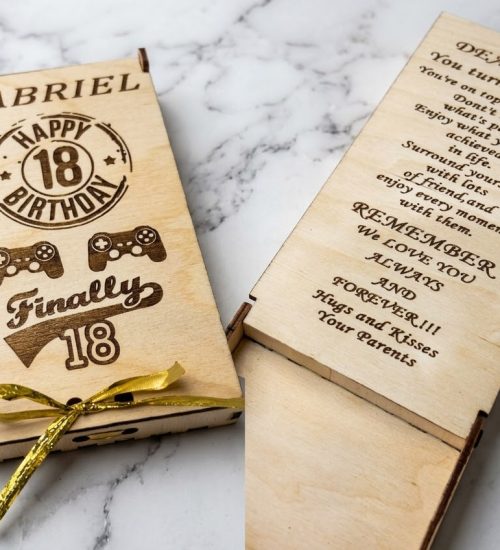 ABRIEL
HAPPY
18
BIRTHDAY
Finally
18
DEA
You turn
You're on top
Don't
what's
Enjoy what yo
achieve
in life.
Surround your
with lots
of friend,and
enjoy every momen
with them.
REMEMBER
We LOVE YOU
ALWAYS
AND
FOREVER!!!
Hugs and Kisses
Your Parents